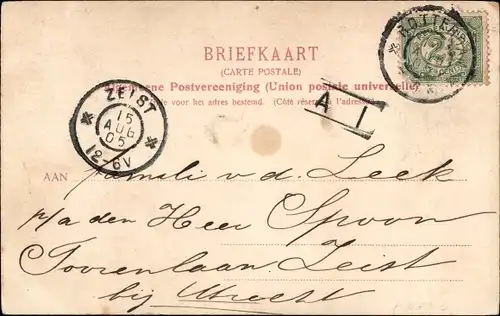 BRIEFKAART
(CARTE POSTALE)
Algemeene Postvereeniging (Union postale universelle)
voor het adres bestemd. (Côté réservé à l'adresse)
ROTTERDAM
2
ZEIST
15
AUG
05
12-6V
A
1
AAN
Familie v. d. Leek
p/a den Heer Spoon
Toorenlaan Zeist
bij Utrecht